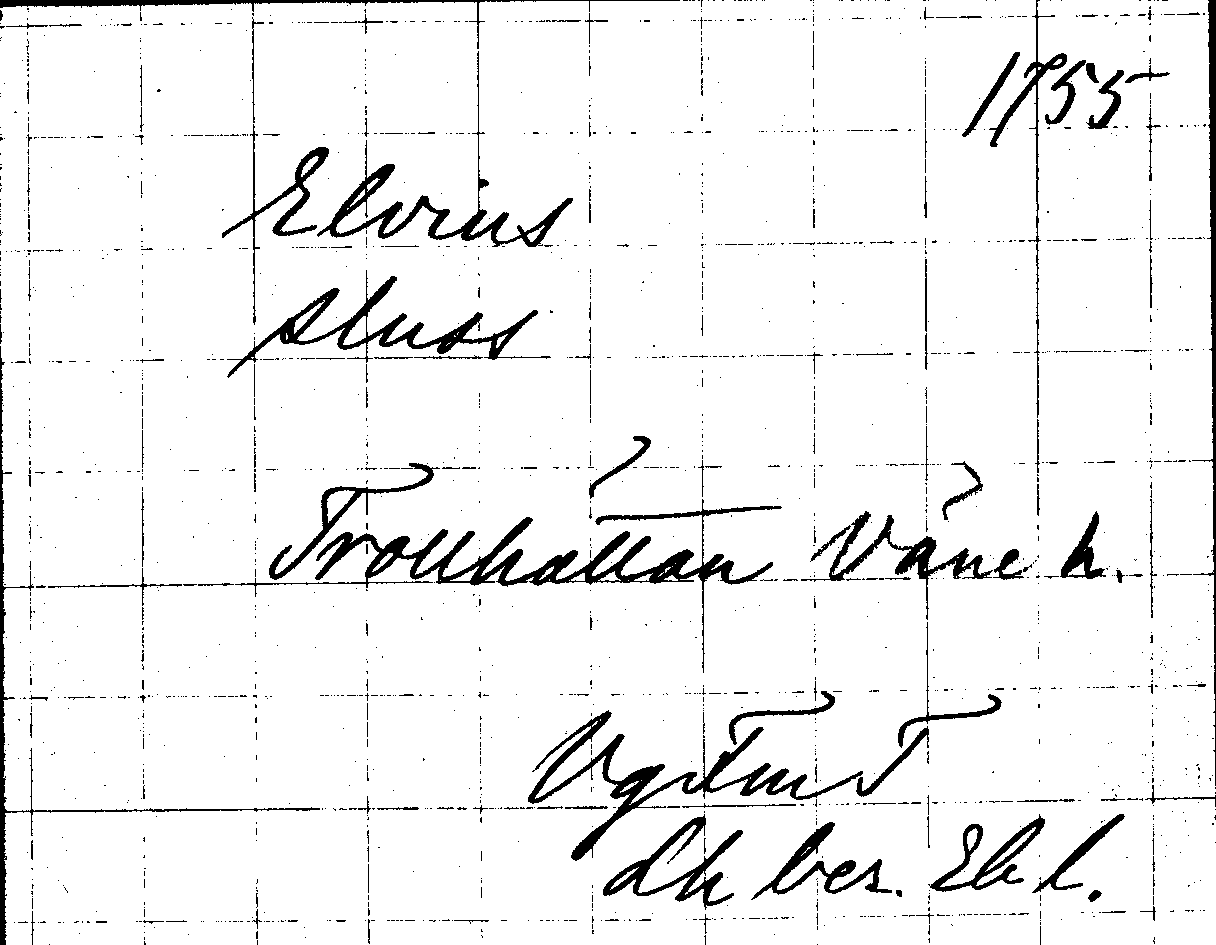 1755
Elvius
sluss
Trollhättan Väne h.
Vg Fm T
dh bes. Eb l.